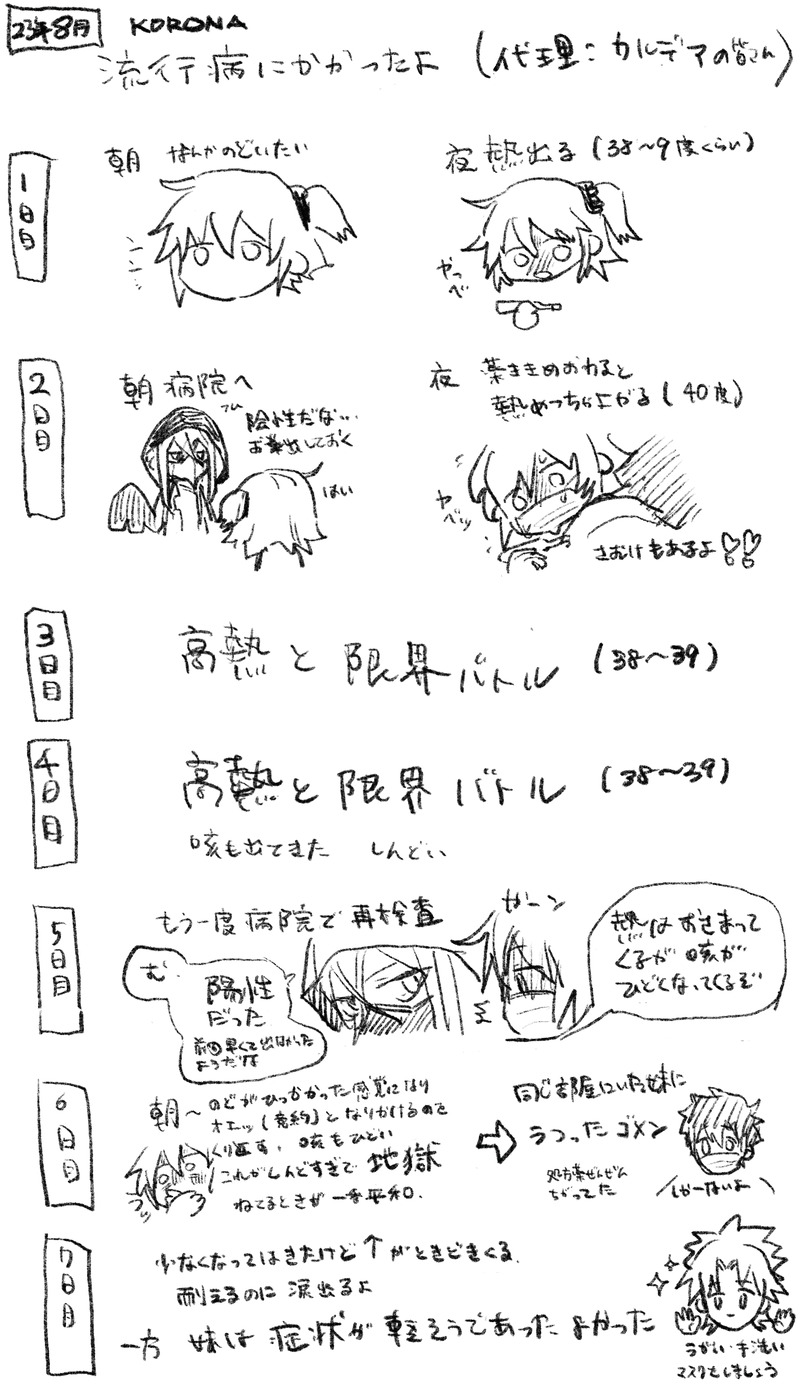 23年8月
KORONA
流行病にかかったよ
(代理:カルデアの皆さん)
1日目
朝 なんかのどいたい
ンンー
夜 熱出る(38〜9度くらい)
やっべ
2日目
朝 病院へ
フム
陰性だな…
お薬出しておく
はい
夜 薬ききめおわると
熱めっちゃ上がる(40度)
ヤベッ
さむけもあるよ
3日目
高熱と限界バトル(38〜39)
4日目
高熱と限界バトル(38〜39)
咳も出てきた しんどい
5日目
もう一度病院で再検査
む
陽性
だった
前回早くて出なかった
ようだな
ガーン
熱はおさまって
くるが咳が
ひどくなってくるぞ
6日目
朝〜のどがひっかかった感覚になり
オエッ(意約)となりかけるので
くり返す、咳もひどい
これがしんどすぎで地獄
ねてるときが一番平和.
同じ部屋にいた妹に
うつったゴメン
処方薬ぜんぜん
ちがってた
しかーないよ
7日目
少なくなってはきたけど↑がときどきくる.
耐えるのに涙出るよ
一方 妹は症状が軽そうであった よかった
うがい・手洗い
マスクもしましょう